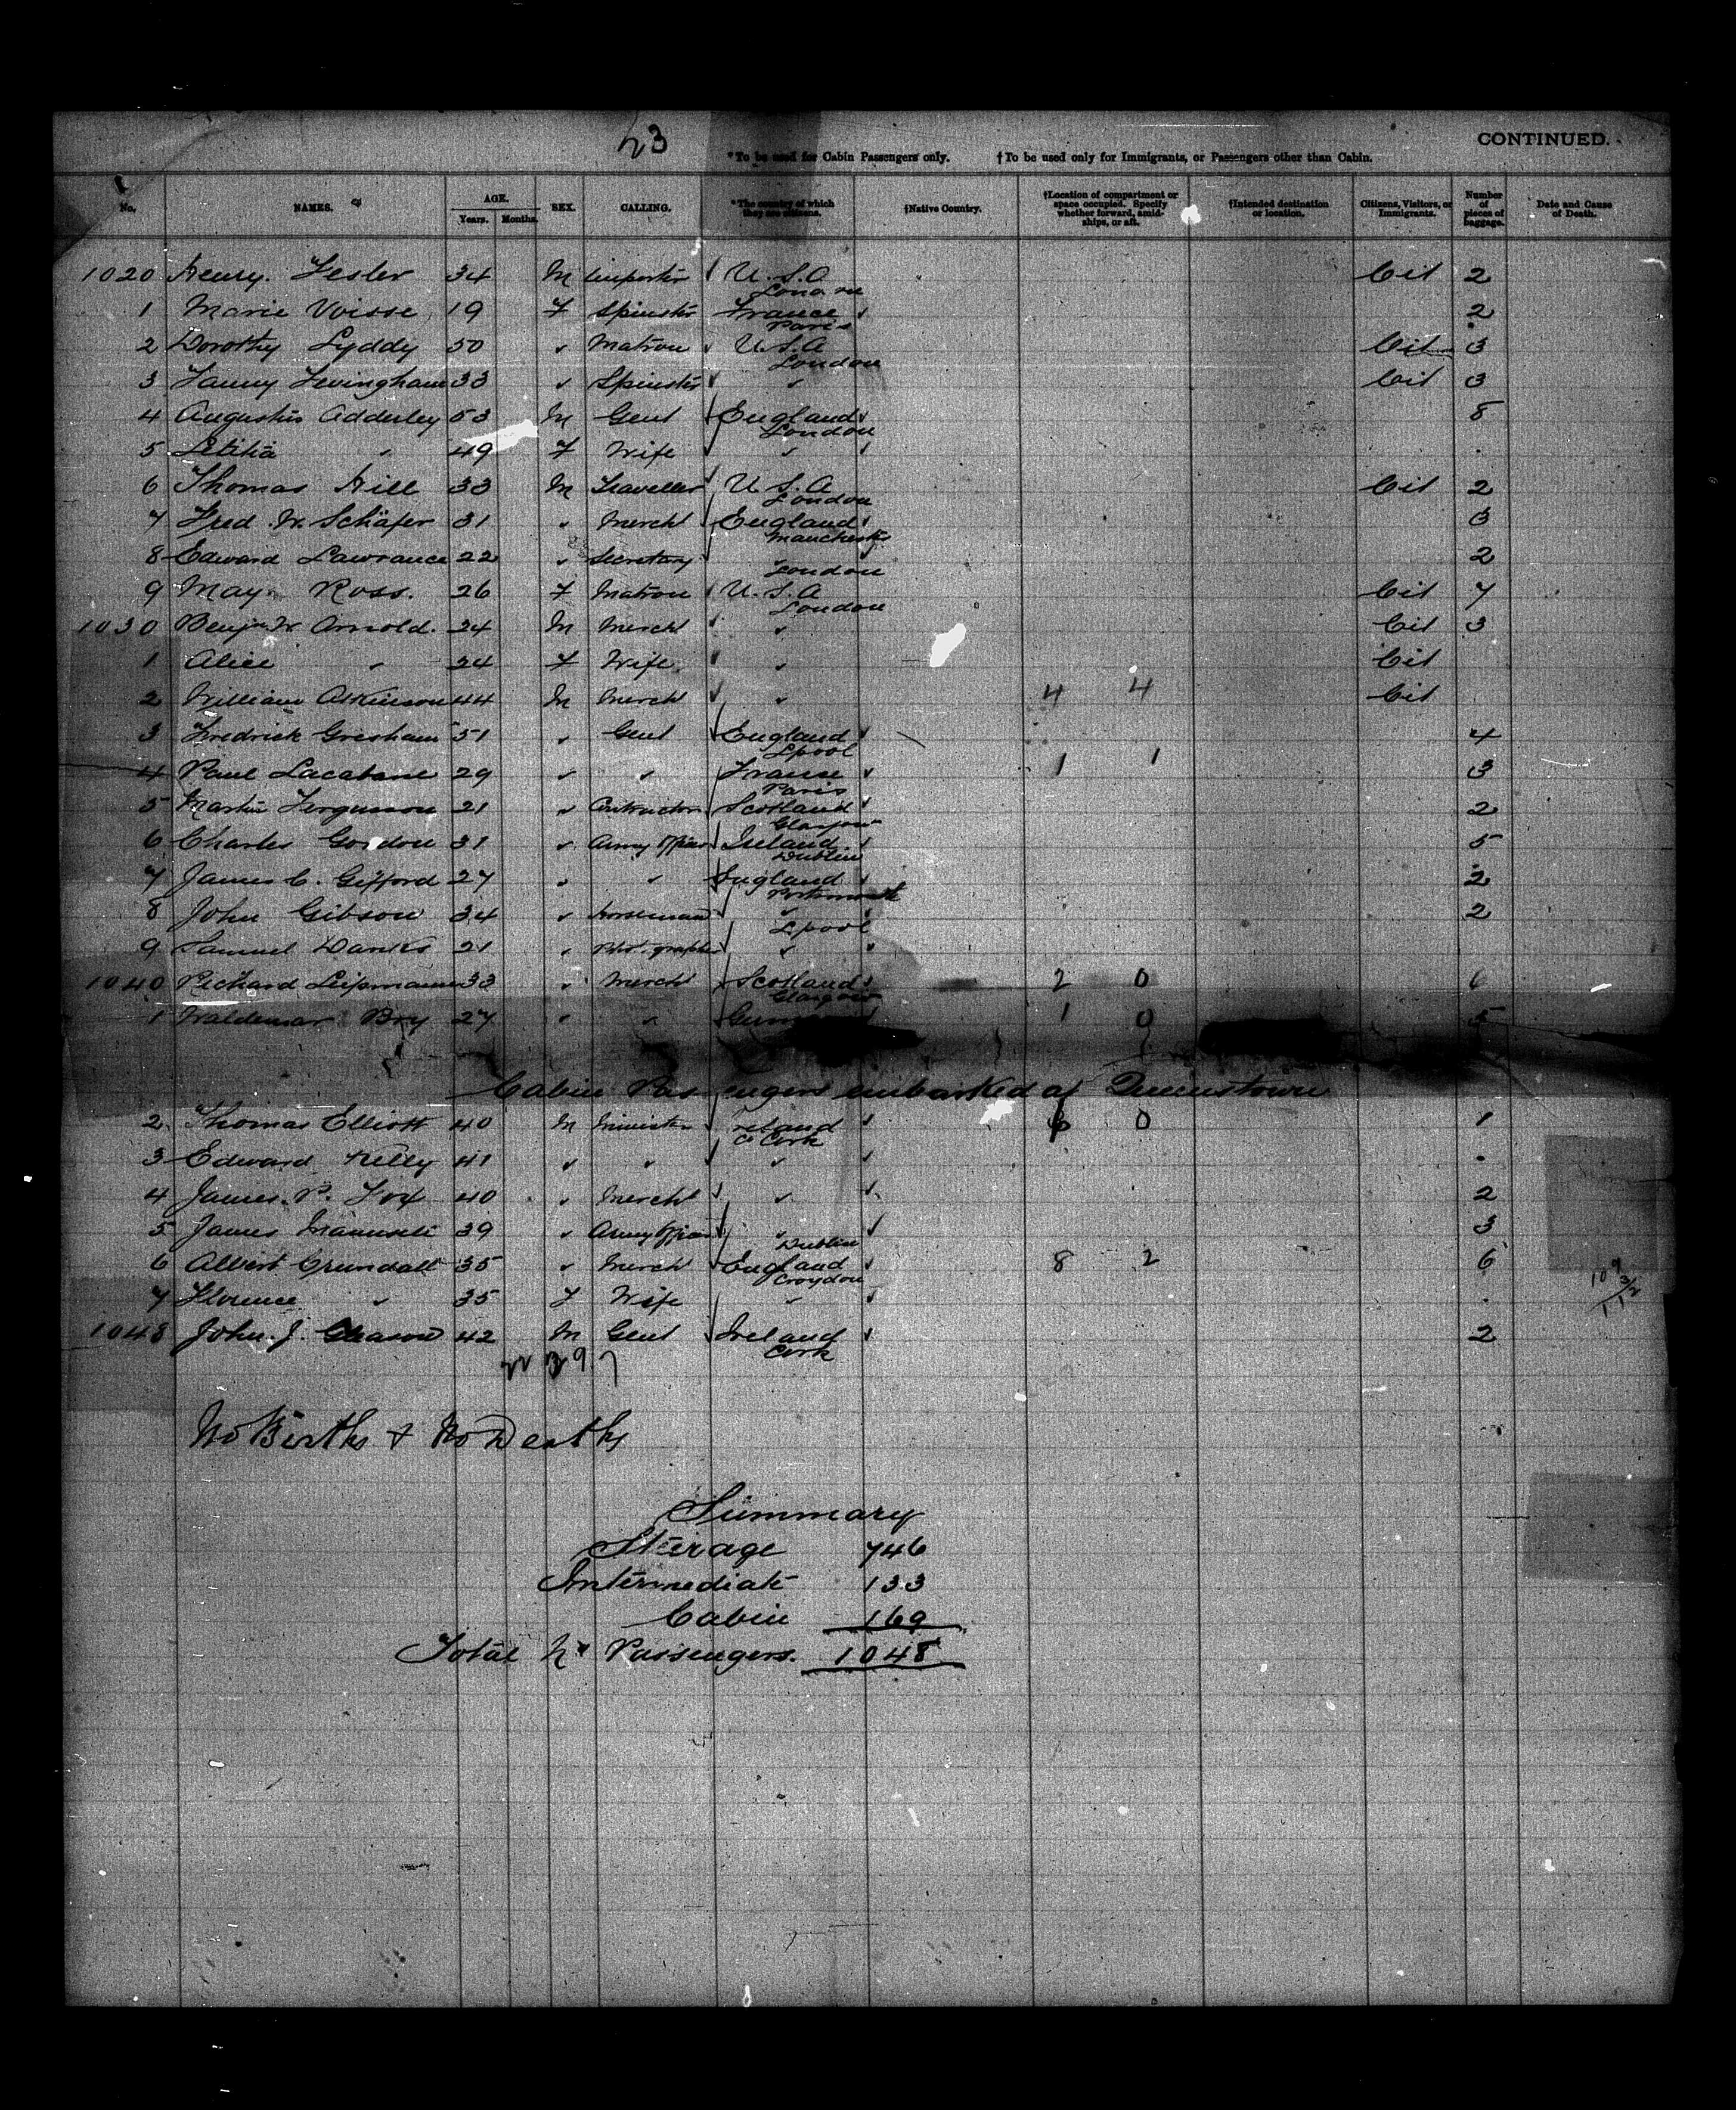 23
CONTINUED.
*To be used for Cabin Passengers only. †To be used only for Immigrants, or Passengers other than Cabin.
No. NAMES. AGE. Years. Months. SEX. CALLING. *The country of which they are citizens. †Native Country. †Location of compartment or space occupied. Specify whether forward, amidships, or aft. †Intended destination or location. Citizens, Visitors, or Immigrants. Number of pieces of baggage. Date and Cause of Death.
1020 Henry Lesler 34 M Importer U.S.A Cit 2
1 Marie Voisse 19 F Spinster France Paris 2
2 Dorothy Lyddy 50 " Matron U.S.A London Cit 3
3 Fanny Levingham 33 " Spinster " Cit 3
4 Augustus Adderley 53 M Gent England London 8
5 Letitia " 49 F Wife "
6 Thomas Hill 33 M Traveller U.S.A London Cit 2
7 Fred. W. Schäfer 31 " Mercht England Manchester 3
8 Edward Lawrance 22 " Secretary " London 2
9 May Ross. 26 F Matron U.S.A London Cit 7
1030 Benjn W. Arnold. 24 M Mercht " Cit 3
1 Alice " 24 F Wife " Cit
2 William Atkinson 44 M Mercht " 4 4 Cit
3 Fredrick Gresham 51 " Gent England Lpool 4
4 Paul Lacabane 29 " " France Paris 1 1 3
5 Martin Ferguson 21 " Contractor Scotland Glasgow 2
6 Charles Gordon 31 " Army Officer Ireland Dublin 5
7 James C. Gifford 27 " " England Portsmouth 2
8 John Gibson 34 " Horseman " Lpool 2
9 Samuel Danks 21 " Photographer "
1040 Richard Lipmann 33 " Mercht Scotland Glasgow 2 0 6
1 Waldemar Bry 27 " " 1 0 5
Cabin Passengers embarked at Queenstown
2 Thomas Elliott 40 M Minister Ireland Co Cork 6 0 1
3 Edward Kelly 41 " " "
4 James P. Fox 40 " Mercht " 2
5 James 39 " Army Officer " Dublin 3
6 Albert Crundall 35 " Mercht England Croydon 8 2 6
7 Florence " 35 F Wife "
1048 John J. Gleason 42 M Gent Ireland Cork 2
109
3/2
112
No Births & No Deaths
Summary
Steerage 746
Intermediate 133
Cabin 169
Total No Passengers. 1048